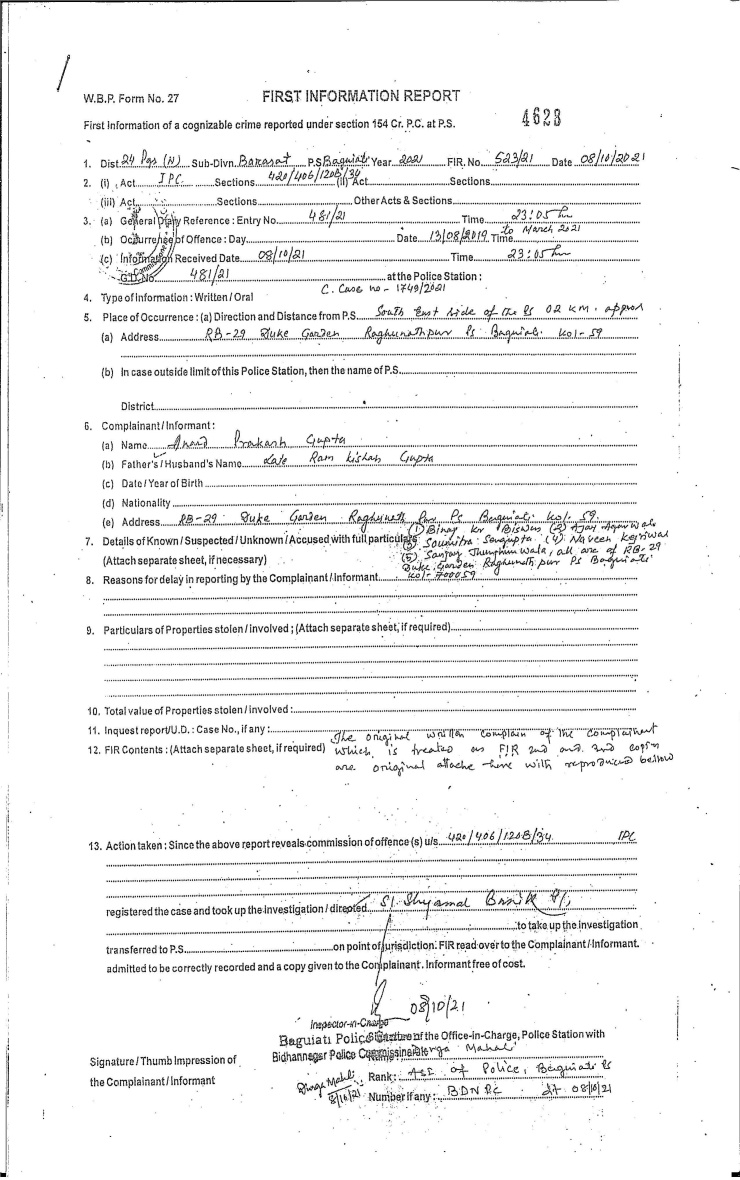 W.B.P. Form No. 27 FIRST INFORMATION REPORT
4623
First Information of a cognizable crime reported under section 154 Cr. P.C. at P.S.
1. Dist. 24 Pgs (N) Sub-Divn. Barasat P.S. Baguiati Year 2021 FIR. No. 523/21 Date 08/10/2021
2. (i) Act IPC Sections 420/406/120B/34 (ii) Act Sections
(iii) Act Sections Other Acts & Sections
3. (a) General Diary Reference : Entry No. 481/21 Time 23:05 hr
(b) Occurrence of Offence : Day Date 13/08/2019 Time to March 2021
(c) Information Received Date 08/10/21 Time 23:05 hr
G.D. No. 481/21 at the Police Station :
C. Case no - 1749/2021
4. Type of Information : Written / Oral
5. Place of Occurrence : (a) Direction and Distance from P.S. South East side of the PS 02 KM. approx
(a) Address RB-29 Duke Garden Raghunathpur PS Baguiati. Kol- 59
(b) In case outside limit of this Police Station, then the name of P.S.
District
6. Complainant / Informant :
(a) Name Anand Prakash Gupta
(b) Father's / Husband's Name Late Ram Kishan Gupta
(c) Date / Year of Birth
(d) Nationality
(e) Address RB-29 Duke Garden Raghunath Pur PS Baguiati. Kol- 59.
7. Details of Known / Suspected / Unknown / Accused with full particulars (1) Binay Kr Biswas (2) Ajay Agarwal
(3) Soumitra Sengupta (4) Naveen Kejriwal
(Attach separate sheet, if necessary) (5) Sanjay Jhunjhunwala, all are of RB-29
Duke Garden Raghunath pur PS Baguiati
8. Reasons for delay in reporting by the Complainant / Informant Kol- 700059
9. Particulars of Properties stolen / involved ; (Attach separate sheet, if required)
10. Total value of Properties stolen / involved :
11. Inquest report/U.D. : Case No., if any :
The original written complain of the complainent
12. FIR Contents : (Attach separate sheet, if required) which is treated as FIR 2nd and 3rd copies
are original attache here with reproduced bellow
13. Action taken : Since the above report reveals commission of offence (s) u/s 420/406/120B/34 IPC
registered the case and took up the investigation / directed SI Shyamal
to take up the investigation
transferred to P.S. on point of jurisdiction. FIR read over to the Complainant / Informant.
admitted to be correctly recorded and a copy given to the Complainant. Informant free of cost.
08/10/21
Inspector-in-Charge
Baguiati Police Station
Signature of the Office-in-Charge, Police Station with
Bidhannagar Police Commissionerate
Name: Durga Mahali
Signature / Thumb Impression of
the Complainant / Informant
Durga Mahali
8/10/21
Rank: ASI of Police, Baguiati PS
Number if any : BDN PC dt 08/10/21